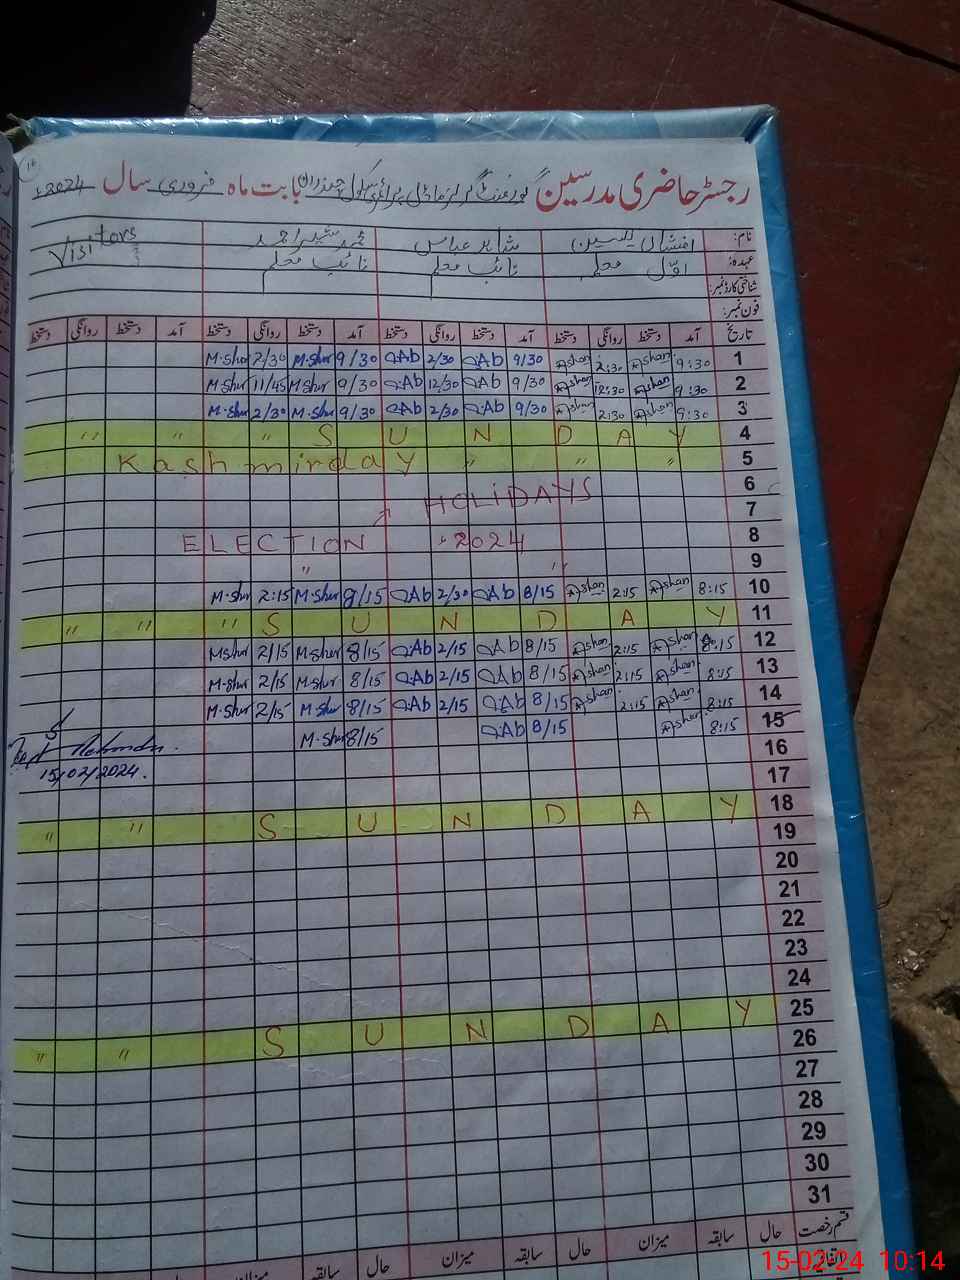 رجسٹر حاضری مدرسین گورنمنٹ گرلز ماڈل پرائمری سکول بابت ماہ فروری سال 2024ء
نام:
Visitors
عہدہ: اوّل معلم نائب معلم نائب معلم
شناختی کارڈ نمبر:
فون نمبر:
تاریخ آمد دستخط روانگی دستخط آمد دستخط روانگی دستخط آمد دستخط روانگی دستخط آمد دستخط روانگی دستخط
M.Sher 2/30 M.Sher 9/30 Ab 2/30 Ab 9/30 Ashan 2:30 Ashan 9:30 1
M.Sher 11/45 M.Sher 9/30 Ab 12/30 Ab 9/30 Ashan 12:30 Ashan 9:30 2
M.Sher 2/30 M.Sher 9/30 Ab 2/30 Ab 9/30 Ashan 2:30 Ashan 9:30 3
" " " SUNDAY 4
Kashmirday " " " 5
6
HOLIDAYS 7
ELECTION 2024 8
" " 9
M.Sher 2:15 M.Sher 8/15 Ab 2/30 Ab 8/15 Ashan 2:15 Ashan 8:15 10
" " " SUNDAY 11
M.Sher 2/15 M.Sher 8/15 Ab 2/15 Ab 8/15 Ashan 2:15 Ashan 8:15 12
M.Sher 2/15 M.Sher 8/15 Ab 2/15 Ab 8/15 Ashan 2:15 Ashan 8:15 13
M.Sher 2/15 M.Sher 8/15 Ab 2/15 Ab 8/15 Ashan 2:15 Ashan 8:15 14
M.Sher 8/15 Ab 8/15 Ashan 8:15 15
15/02/2024.
16
17
" " SUNDAY 18
19
20
21
22
23
24
" " SUNDAY 25
26
27
28
29
30
31
قسم رخصت حال سابقہ میزان حال سابقہ میزان حال سابقہ میزان
15-02-24 10:14